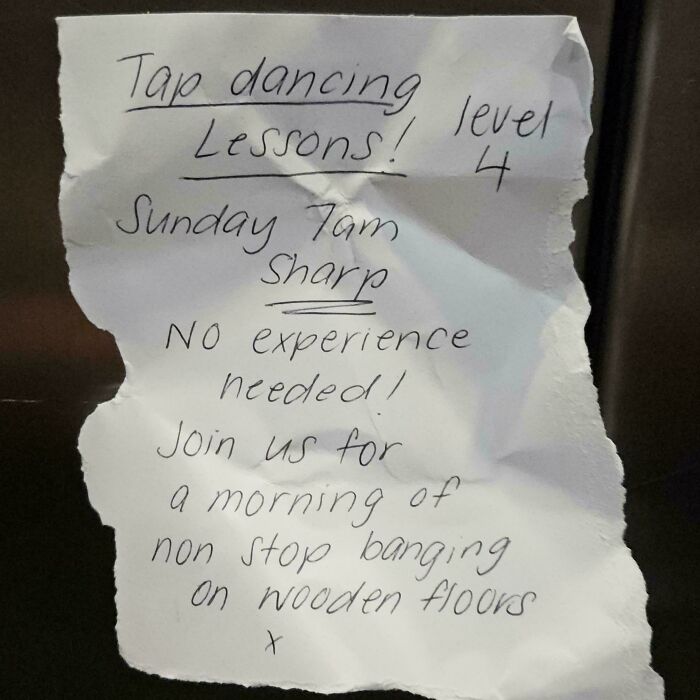 Tap dancing
Lessons!
level
4
Sunday 7am
Sharp
No experience
needed!
Join us for
a morning of
non stop banging
on wooden floors
x